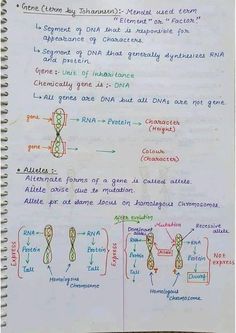 • Gene (term by Johannsen):- Mendel used term
"Element" or "Factor"
↳ Segment of DNA that is responsible for
appearance of characters.
↳ Segment of DNA that generally synthesizes RNA
and protein.
Gene :- Unit of inheritance
Chemically gene is :- DNA
↳ All genes are DNA but all DNAs are not gene.
gene → RNA → Protein → Character
(Height)
gene → Character
(Colour)
• Alleles :-
Alternate forms of a gene is called allele.
Allele arise due to mutation.
Allele at same locus on homologous chromosomes.
After evolution
Mutation
Recessive allele
Dominant allele
Express
RNA
Protein
Tall
RNA
Protein
Tall
Express
Homologous
Chromosome
Express
RNA
Protein
Tall
Allele
RNA
Protein
Dwarf
Not express
Homologous
Chromosome